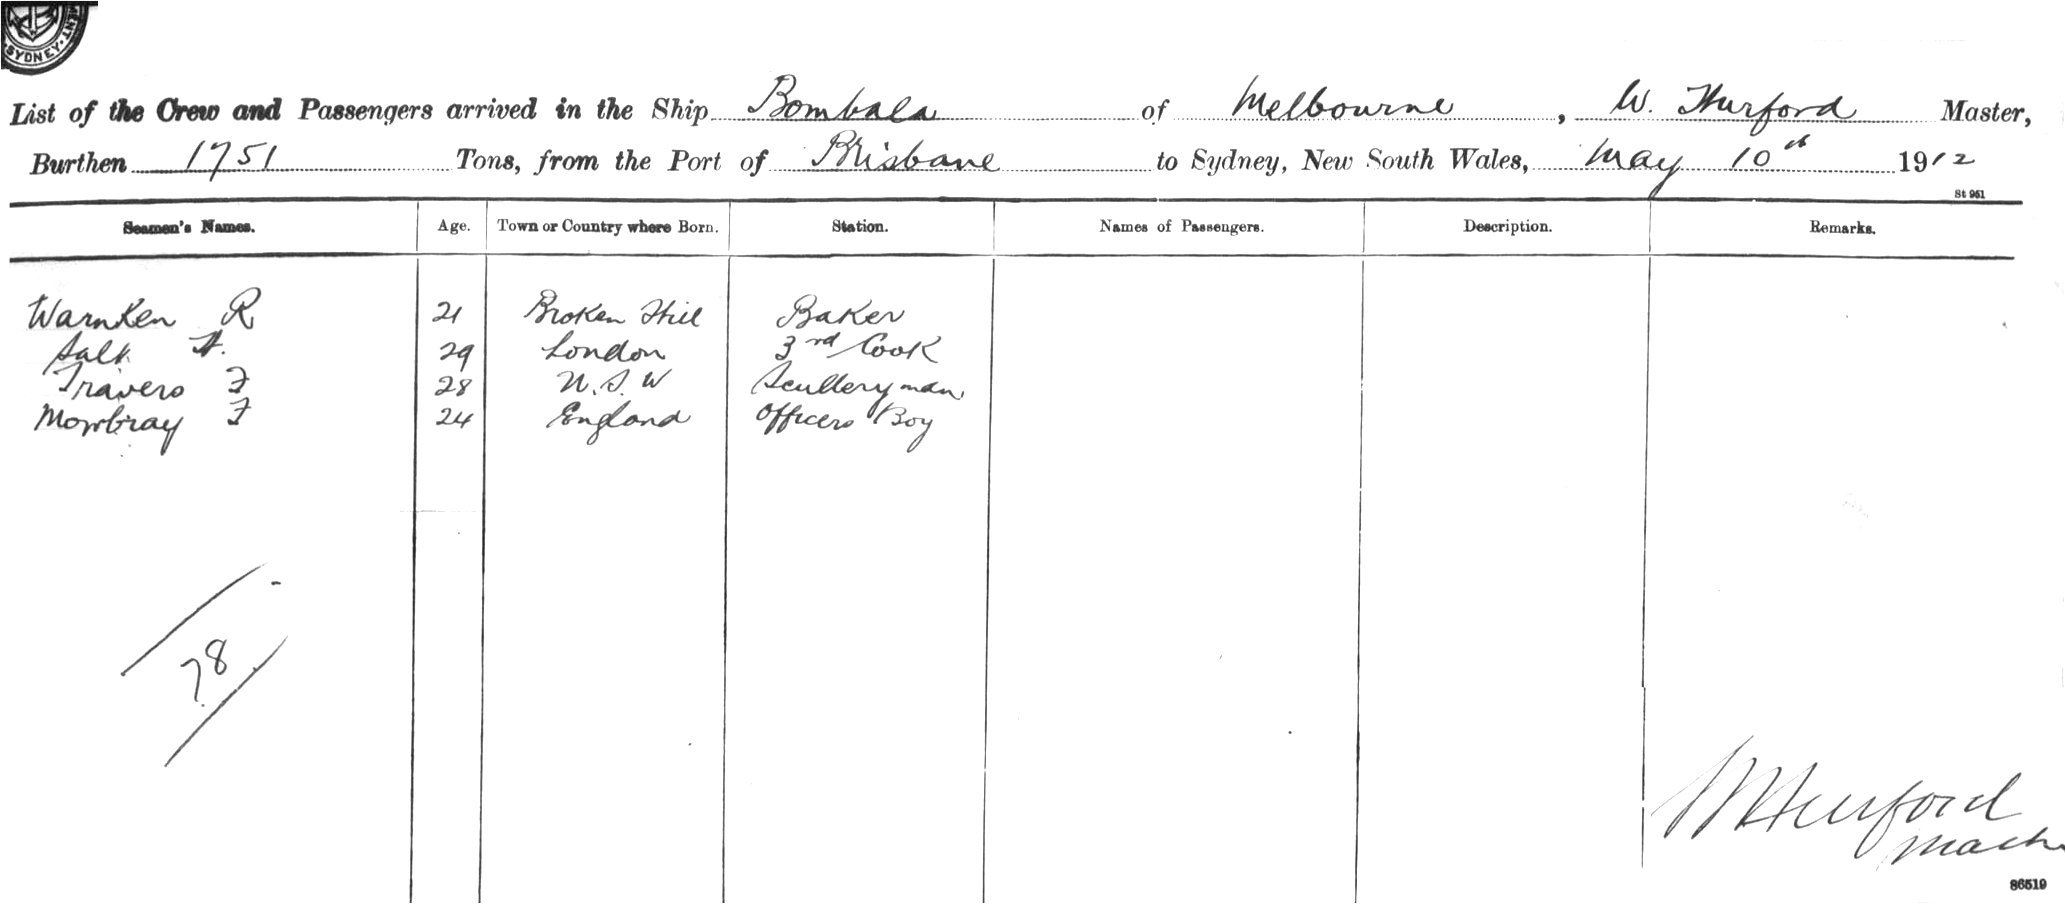 MENT SYDNEY
List of the Crew and Passengers arrived in the Ship Bombala of Melbourne, W. Hurford Master,
Burthen 1751 Tons, from the Port of Brisbane to Sydney, New South Wales, May 10th 1912
St 951
Seamen's Names. Age. Town or Country where Born. Station. Names of Passengers. Description. Remarks.
Warnken R 21 Broken Hill Baker
Salt 29 London 3rd Cook
Travers F 28 N.S.W Sculleryman
Mowbray F 24 England Officers Boy
78
W Hurford
86519